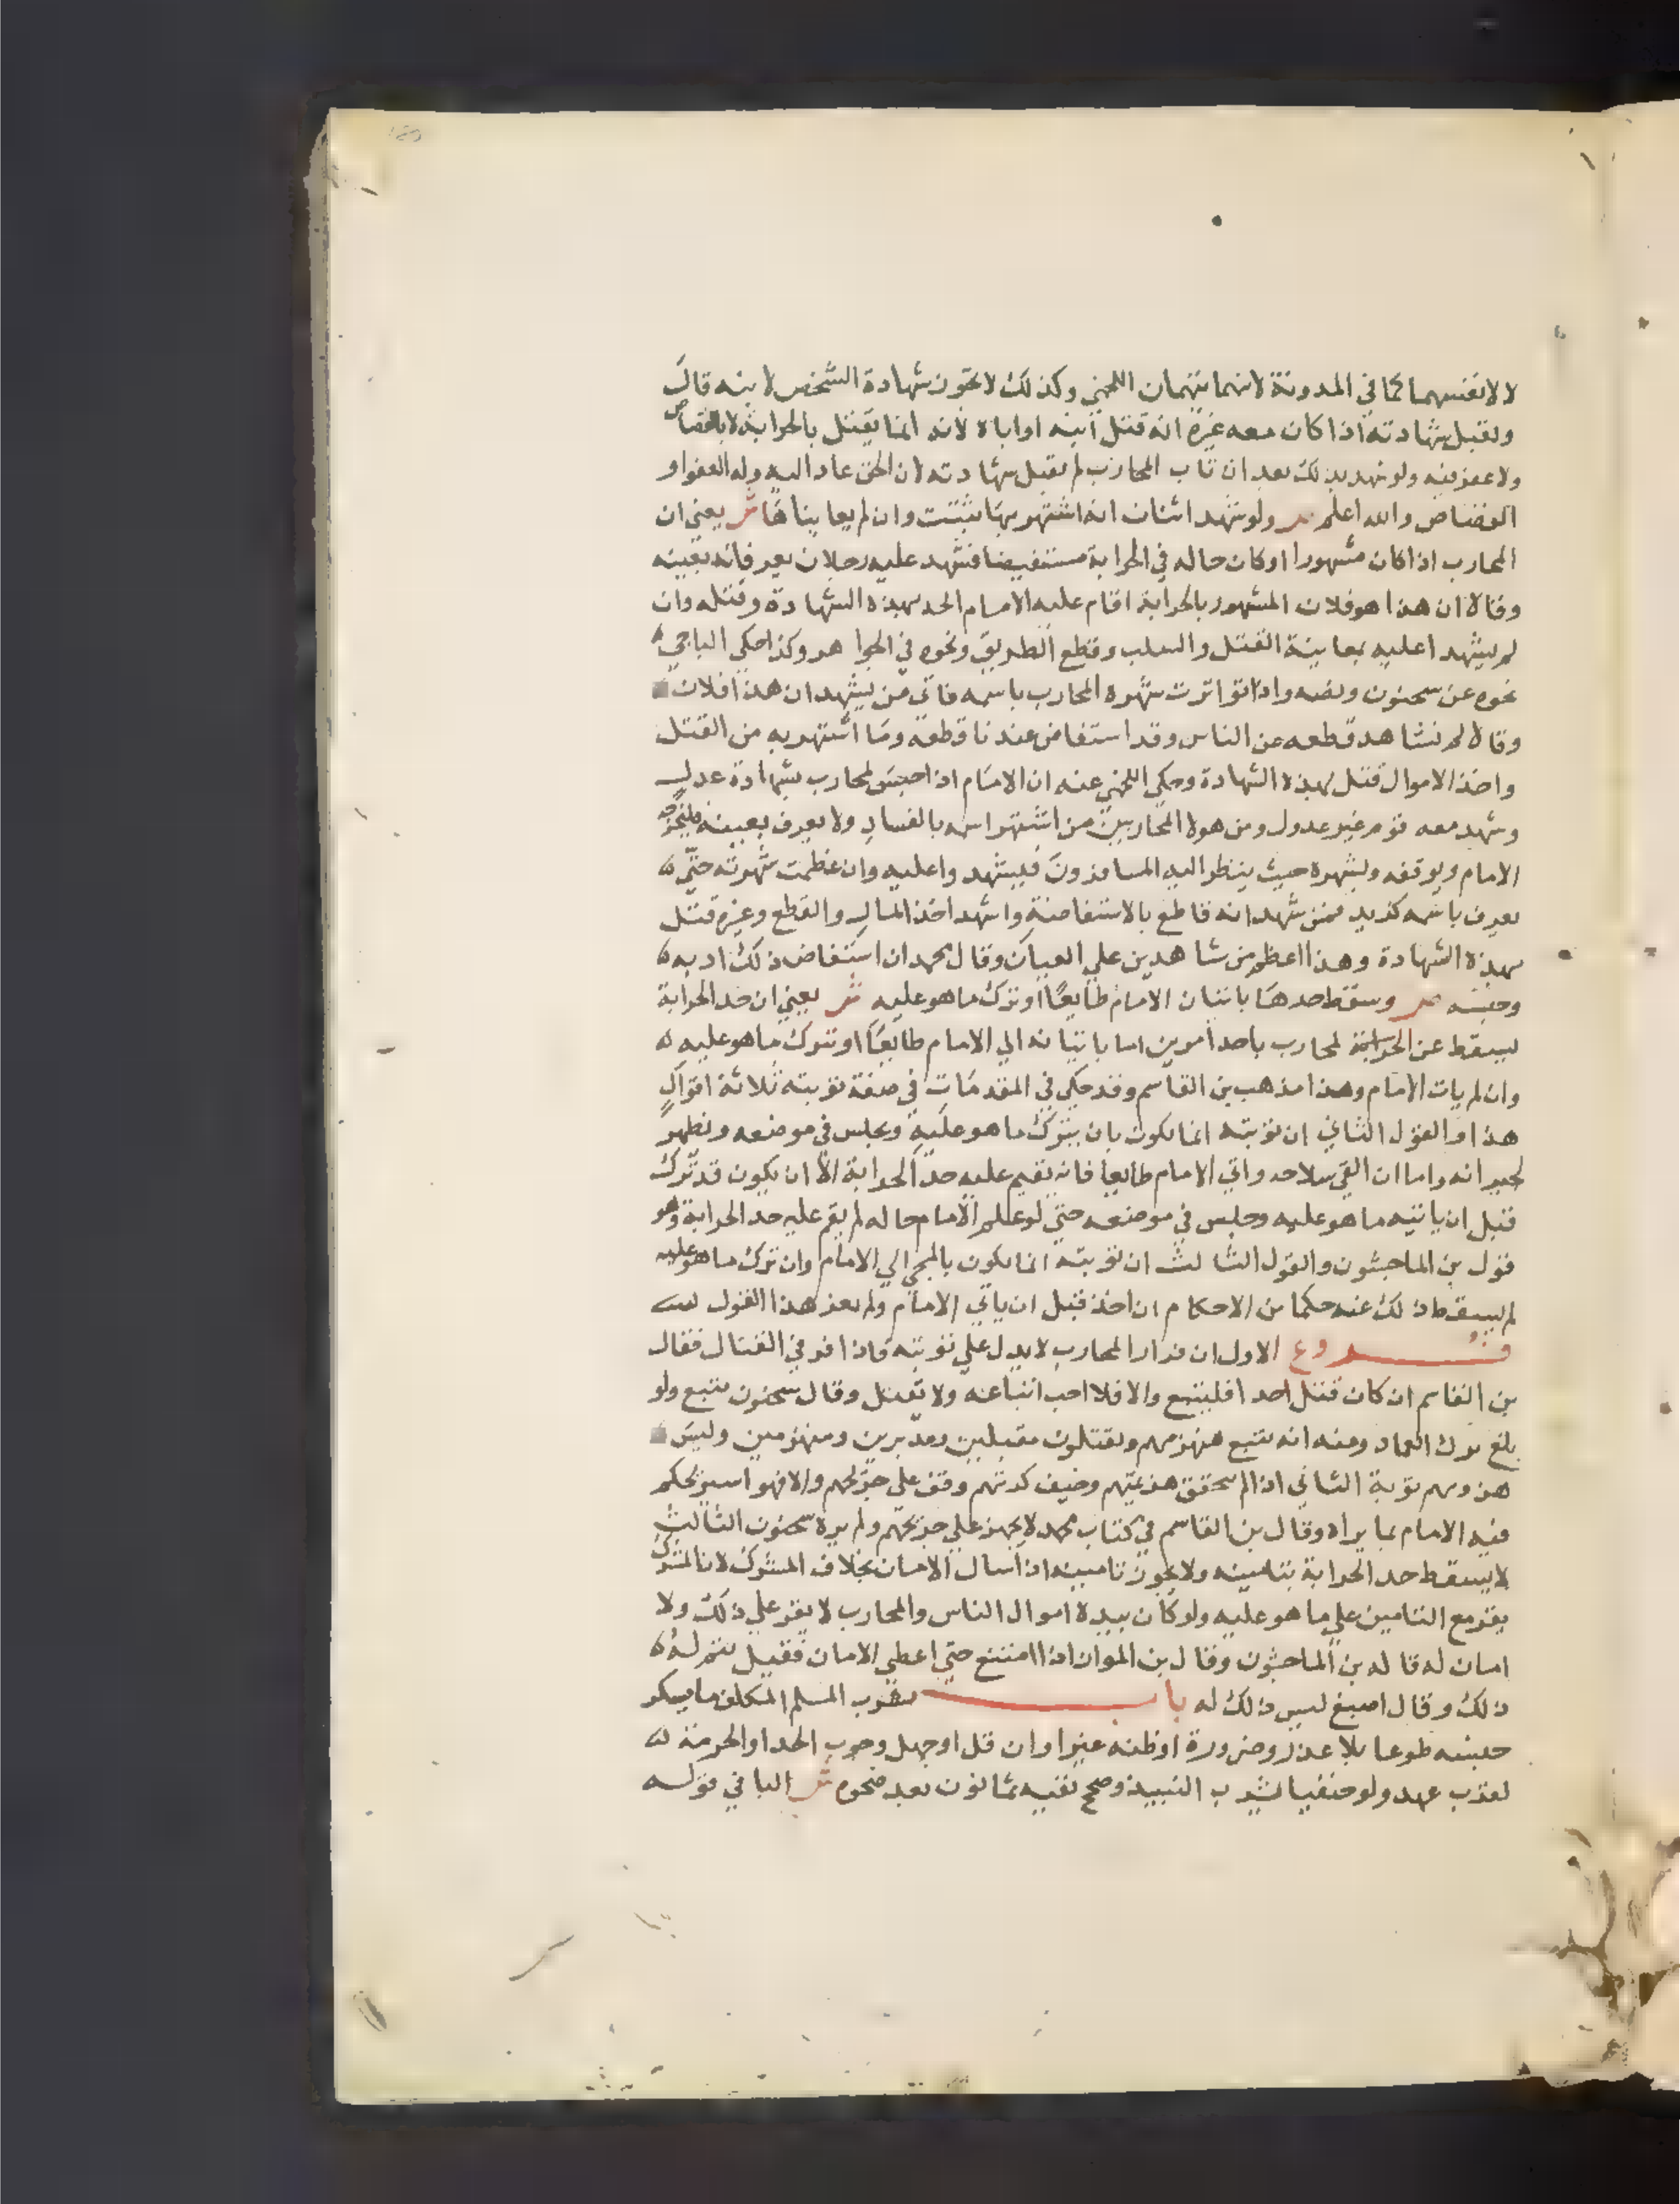 لا لانفسهما كما في المدونة لانهما يتهمان اللخمي وكذلك لا تجوز شهادة الشخص لابنه قال
وتقبل شهادته اذا كان معه غيره انه قتل ابنه او اباه لانه انما يقتل بالحرابة لا بالقصاص
ولا عفو فيه ولو شهد بذلك بعد ان تاب المحارب لم تقبل شهادته لان الحق عاد اليه وله العفو او
القصاص والله اعلم ص ولو شهد اثنان انه اشتهر بها ثبتت وان لم يعايناها ش يعني ان
المحارب اذا كان مشهورا او كان حاله في الحرابة مستفيضا فشهد عليه رجلان يعرفانه بعينه
وقالا ان هذا هو فلان المشهور بالحرابة اقام عليه الامام الحد بهذه الشهادة وقتله وان
لم يشهدا عليه بمعاينة القتل والسلب وقطع الطريق ونحوه في الجواهر وكذا حكى الباجي
نحوه عن سحنون ونصه واذا تواترت شهرة المحارب باسمه فاتى من يشهد ان هذا فلان
وقالا لم نشاهد قطعه عن الناس وقد استفاض عندنا قطعه وما اشتهر به من القتل
واخذ الاموال قتل بهذه الشهادة وحكى اللخمي عنه ان الامام اذا حبس لمحارب بشهادة عدل
وشهد معه قوم غير عدول ومن هولا المحاربين من اشتهر اسمه بالفساد ولا يعرف بعينه فليخرجه
الامام ويوقفه وليشهره حيث ينظر اليه المسافرون فيشهدوا عليه وان عظمت شهرته حتى
يعرف باسمه كزيد فمن شهد انه قاطع بالاستفاضة واشهد اخذ المال والقطع وغيره قتل
بهذه الشهادة وهذا اعظم من شاهدين على العيان وقال محمد ان استفاض ذلك ادبه
وحبسه ص وسقط حدها باتيان الامام طايعا او ترك ما هو عليه ش يعني ان حد الحرابة
يسقط عن المحارب باحد امرين اما باتيانه الى الامام طايعا او تترك ما هو عليه
وان لم يات الامام وهذا مذهب بن القاسم وقد حكى في المقدمات في صفة توبته ثلاثة اقوال
هذا او القول الثاني ان توبته انما تكون بان يترك ما هو عليه ويجلس في موضعه ويظهر
لجيرانه واما ان القى سلاحه واتى الامام طايعا فانه يقيم عليه حد الحرابة الا ان يكون قد ترك
قبل ان ياتيه ما هو عليه وجلس في موضعه حتى لو علم الامام حاله لم يقم عليه حد الحرابة وهو
قول بن الماجشون والقول الثالث ان توبته انما تكون بالمجي الى الامام وان ترك ما هو عليه
لم يسقط ذلك عنه حكما من الاحكام ان اخذ قبل ان ياتي الامام ولم يعز هذا القول
فروع الاول ان فرار المحارب لا يدل على توبته فاذا فر في القتال فقال
بن القاسم ان كان قتل احدا فليتبع والا فلا احب اتباعه ولا يقتل وقال سحنون يتبع ولو
بلغ برك الغماد ومنه انه يتبع منهزمهم ويقتلون مقبلين ومدبرين ومنهزمين وليس
هروبهم توبة الثاني اذا لم تتحقق هزيمتهم وخيف كرتهم وقف على جريحهم والا فهو اسير يحكم
فيه الامام بما يراه وقال بن القاسم في كتاب محمد لا يجهز على جريحهم ولم يره سحنون الثالث
لا يسقط حد الحرابة بتامينه ولا يجوز تامينه اذا سال الامان بخلاف المشرك لان المشرك
يقر مع التامين على ما هو عليه ولو كان بيده اموال الناس والمحارب لا يقر على ذلك ولا
امان له قاله بن الماجشون وقال بن المواز اذا امتنع حتى اعطي الامان فقيل يتم له
ذلك وقال اصبغ ليس ذلك له باب بشرب المسلم المكلف ما يسكر
جنسه طوعا بلا عذر وضرورة او ظنه غيرا وان قل او جهل وجوب الحد او الحرمة
لقرب عهد ولو حنفيا يشرب النبيذ وصحح نفيه ثمانون بعد صحوه ش البا في قوله